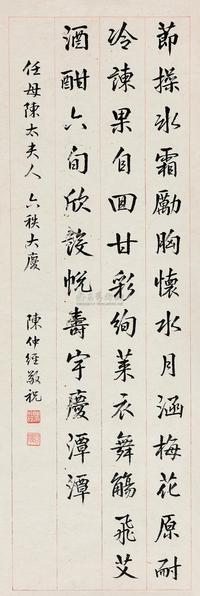 節操冰霜勵胸懷水月涵梅花原耐
冷諫果自回甘彩絢萊衣舞觴飛艾
酒酣六旬欣設帨壽宇慶潭潭
任母陳太夫人 六秩大慶 陳仲經敬祝